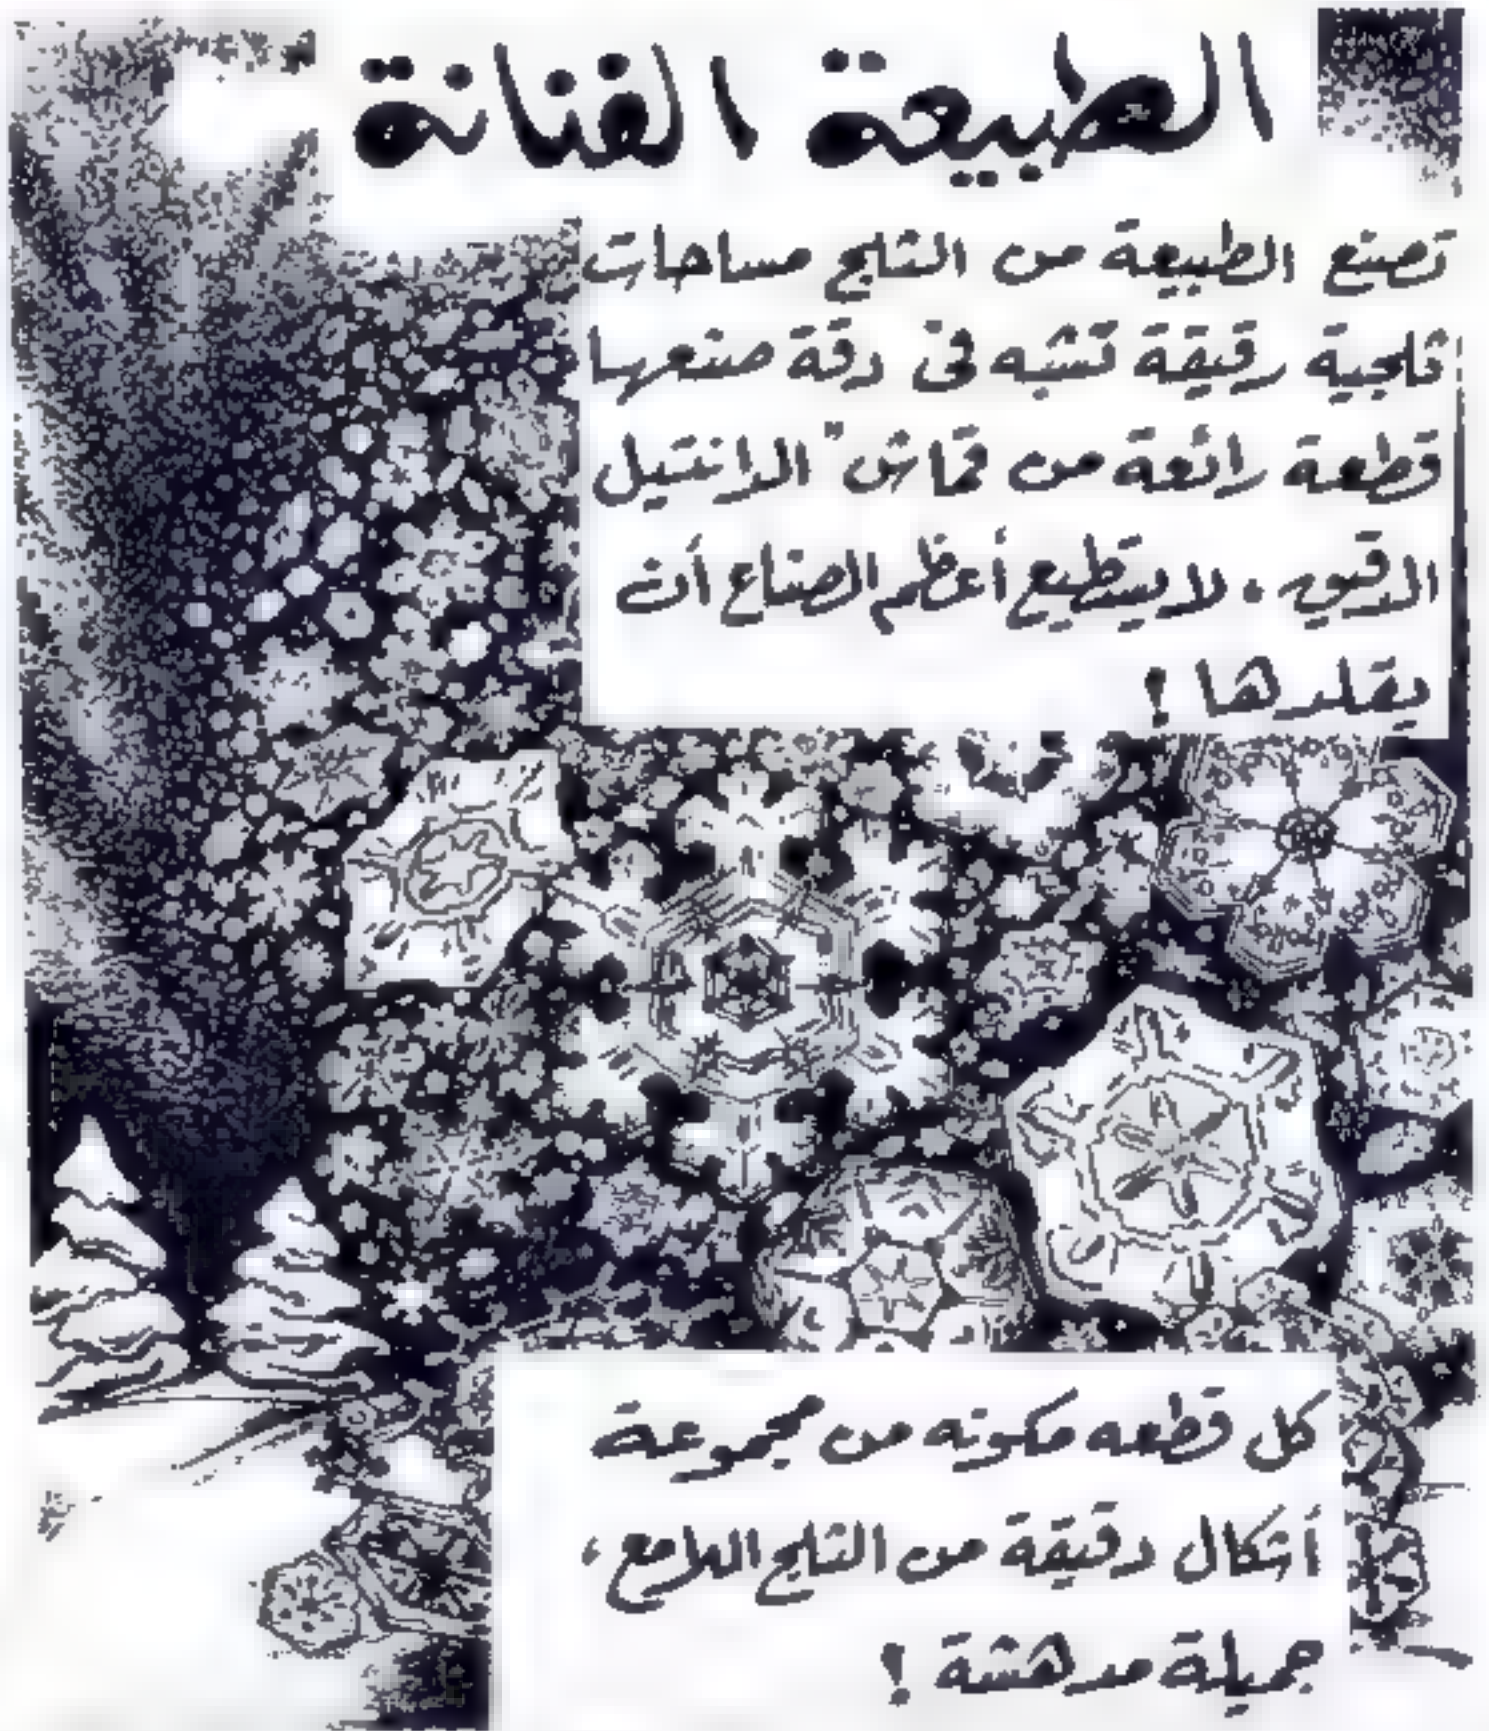 الطبيعة الفنانة
تصنع الطبيعة من الثلج مساحات
ثلجية رقيقة تشبه فى دقة صنعها
قطعة رائعة من قماش " الدانتيل
الدقيق . لا يستطيع أعظم الصناع أن
يقلدها !
كل قطعه مكونه من مجموعة
أشكال دقيقة من الثلج اللامع ،
جميلة مدهشة !